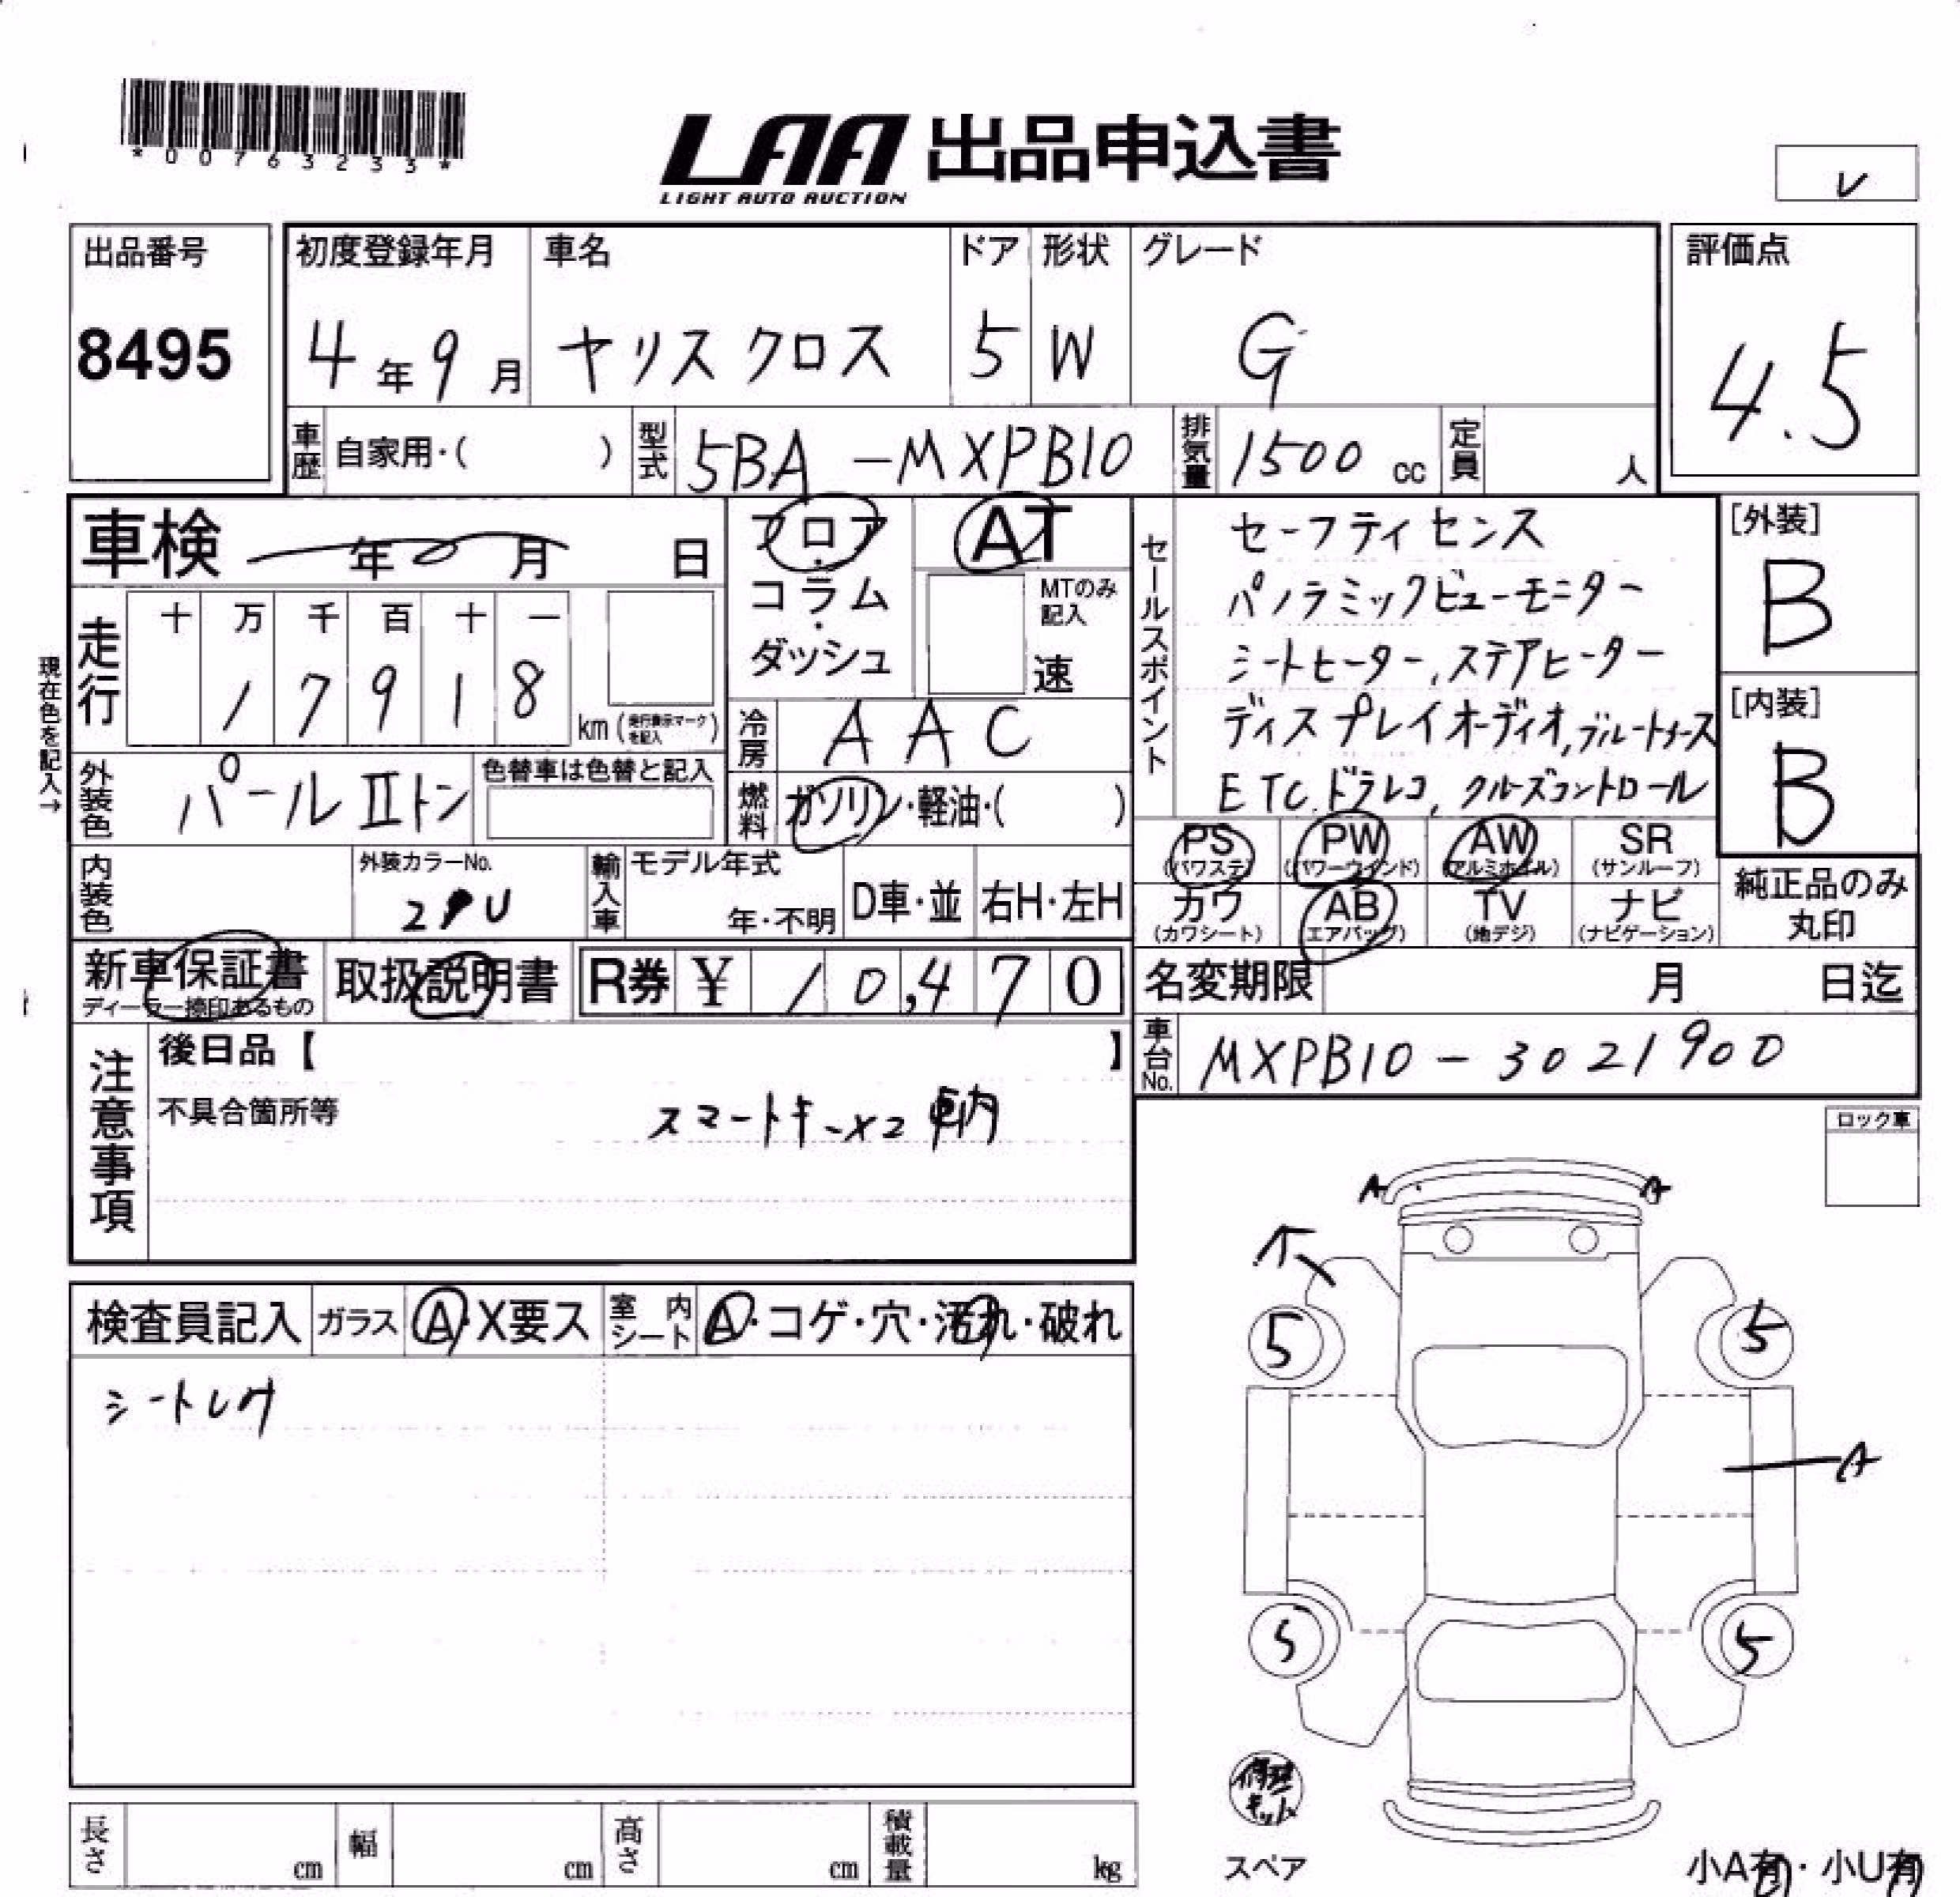 *00763233*
LAA 出品申込書
LIGHT AUTO AUCTION
レ
出品番号
8495
初度登録年月
4年9月
車名
ヤリスクロス
ドア
5
形状
W
グレード
G
評価点
4.5
車歴 自家用・( )
型式 5BA-MXPB10
排気量 1500 cc
定員 人
車検 年 月 日
フロア・コラム・ダッシュ
AT
MTのみ記入
速
走行
十 万 千 百 十 一
1 7 9 1 8
km (走行表示マークを記入)
現在色を記入→
外装色 パールⅡトン
色替車は色替と記入
冷房 AAC
燃料 ガソリン・軽油・( )
セールスポイント
セーフティセンス
パノラミックビューモニター
シートヒーター、ステアヒーター
ディスプレイオーディオ,ブルートゥース
ETC.ドラレコ、クルーズコントロール
[外装]
B
[内装]
B
PS (パワステ)
PW (パワーウインド)
AW (アルミホイル)
SR (サンルーフ)
カワ (カワシート)
AB (エアバッグ)
TV (地デジ)
ナビ (ナビゲーション)
純正品のみ
丸印
内装色
外装カラーNo.
2PU
輸入車
モデル年式
年・不明
D車・並
右H・左H
新車保証書
ディーラー捺印あるもの
取扱説明書
R券 ¥ 10,470
名変期限 月 日迄
車台No. MXPB10-3021900
注意事項
後日品【 】
不具合箇所等
スマートキーx2 車内
ロック車
検査員記入
ガラス A・X要ス
室内シート A・コゲ・穴・汚れ・破れ
A A
5 5
A
5 5
修理キット
スペア
小A有・小U有
長さ cm
幅 cm
高さ cm
積載量 kg